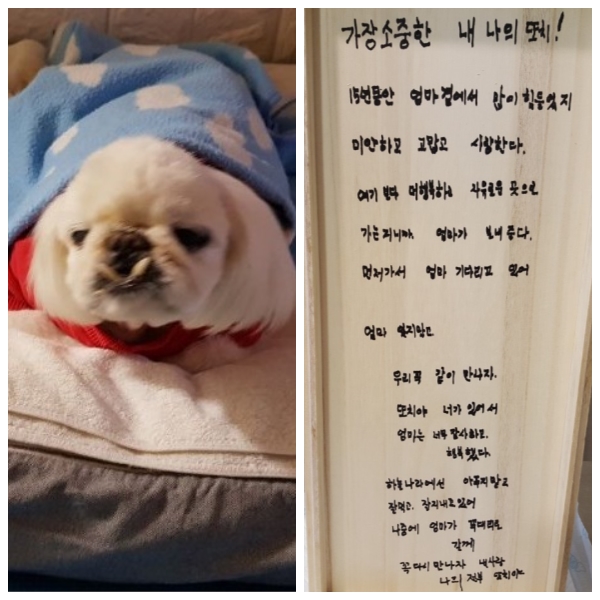 가장소중한 내 나의 또치!
15년동안 엄마곁에서 많이 힘들었지
미안하고 고맙고 사랑한다.
여기 보다 더행복하고 자유로운 곳으로
가는거니까. 엄마가 보내준다.
먼저가서 엄마 기다리고 있어
엄마 잊지말고
우리꼭 같이 만나자.
또치야 너가 있어서
엄마는 너무 감사하고.
행복했다.
하늘나라에선 아푸지말고
잘먹고. 잘지내고있어
나중에 엄마가
갈께
꼭 다시만나자 내사랑
나의 전부 또치야